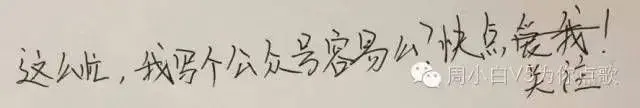 这么忙，我写个公众号容易么？快点爱我！
关注
周小白V5为你点歌